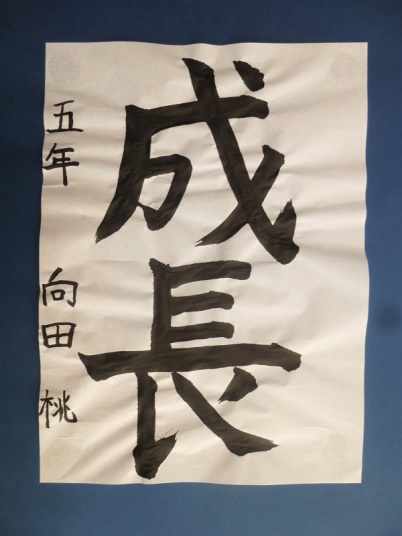 成長
五年 向田 桃